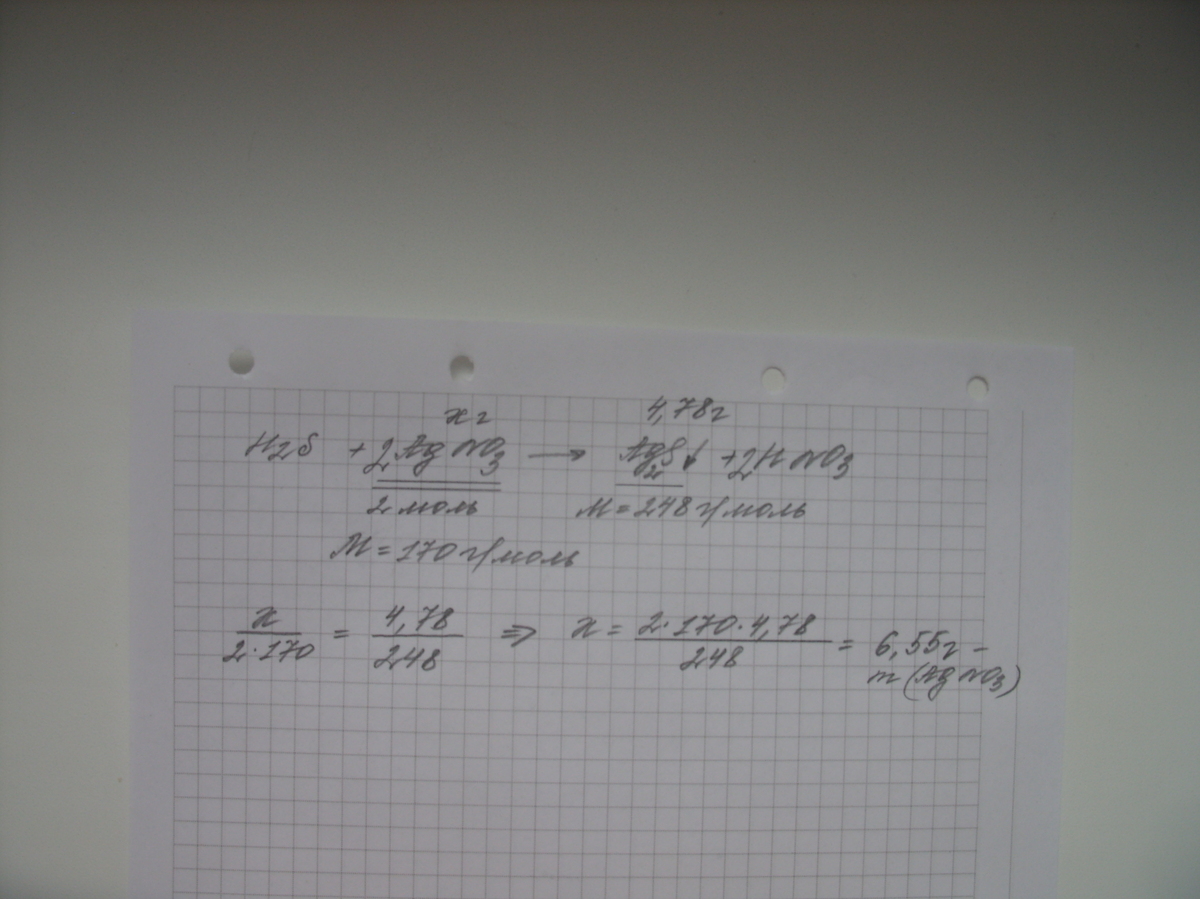 x г 4,78 г
H2S + 2AgNO3 → Ag2S↓ + 2HNO3
2 моль M = 248 г/моль
M = 170 г/моль
x/2·170 = 4,78/248 ⇒ x = 2·170·4,78/248 = 6,55 г –
m(AgNO3)